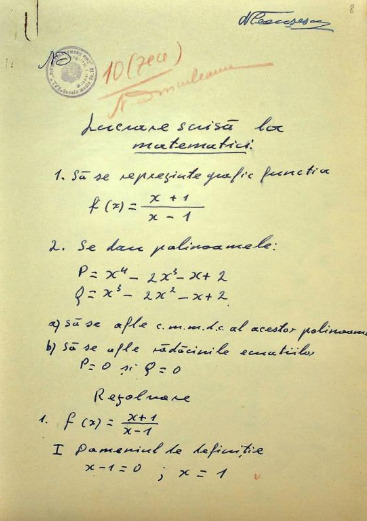 8
N Ceaușescu
10 (zece)
Lucrare scrisă la
matematici
1. Să se reprezinte grafic functia
f(x) = x+1 / x-1
2. Se dau polinoamele:
P = x⁴ - 2x³ - x + 2
Q = x³ - 2x² - x + 2
a) Să se afle c.m.m.d.c al acestor polinoame
b) Să se afle rădăcinile ecuatiilor
P=0 si Q=0
Rezolvare
1. f(x) = x+1 / x-1
I Domeniul de definiție
x-1=0 ; x=1